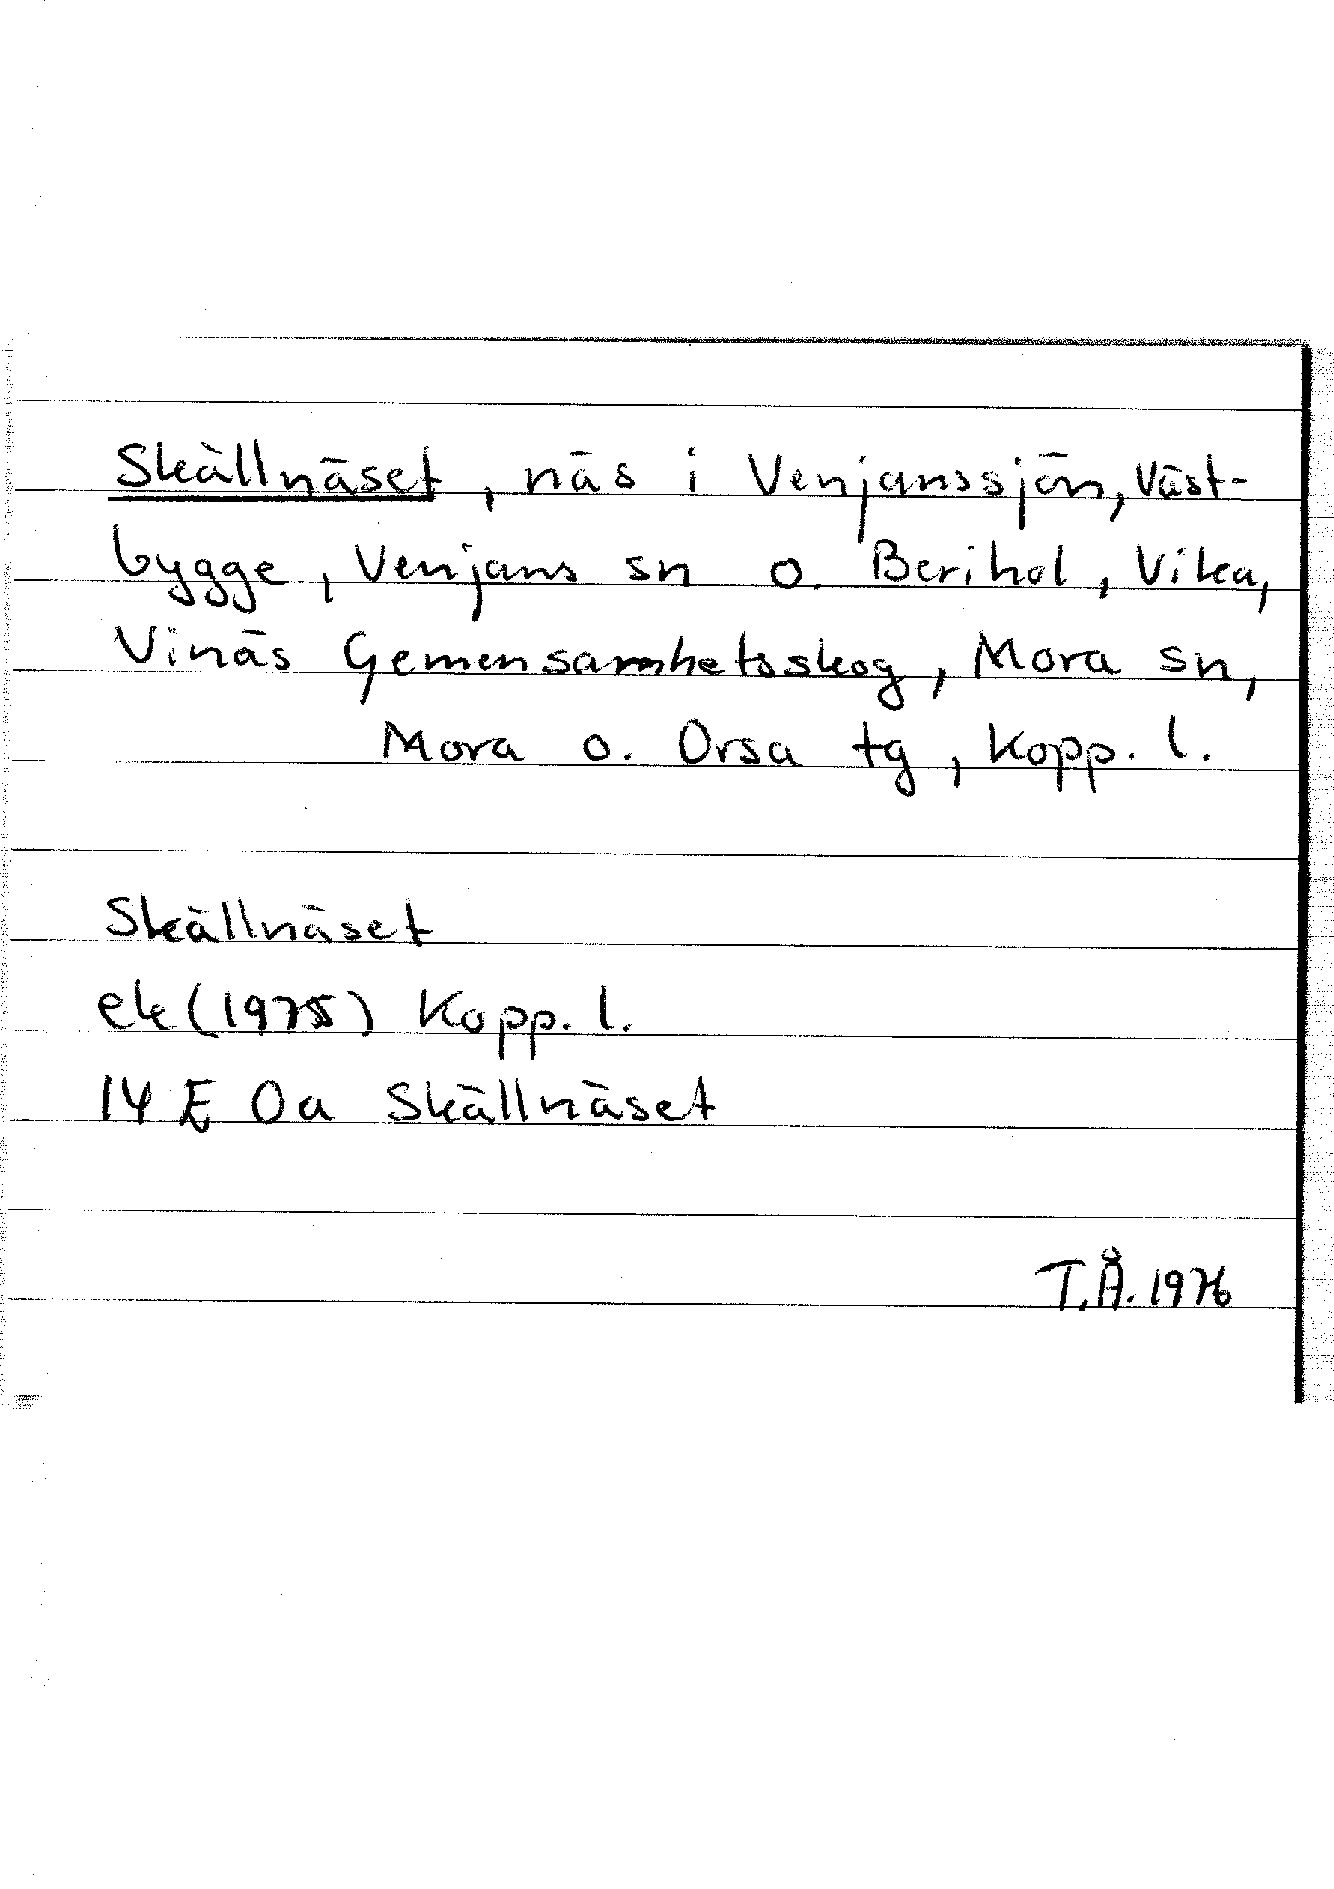 Skällnäset, näs i Venjanssjön, Väst-
bygge, Venjans sn o. Berihol, Vika,
Vinäs Gemensamhetsskog, Mora sn,
Mora o. Orsa tg, Kopp. l.
Skällnäset
ek (1975) Kopp. l.
14 E 0a Skällnäset
T.Å. 1976